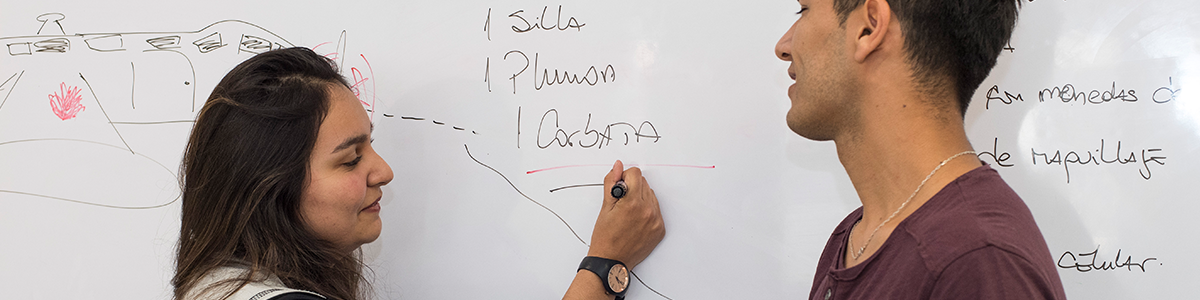 1 Silla
1 Plumon
1 Corbata
con monedas d
de maquillaje
celular.